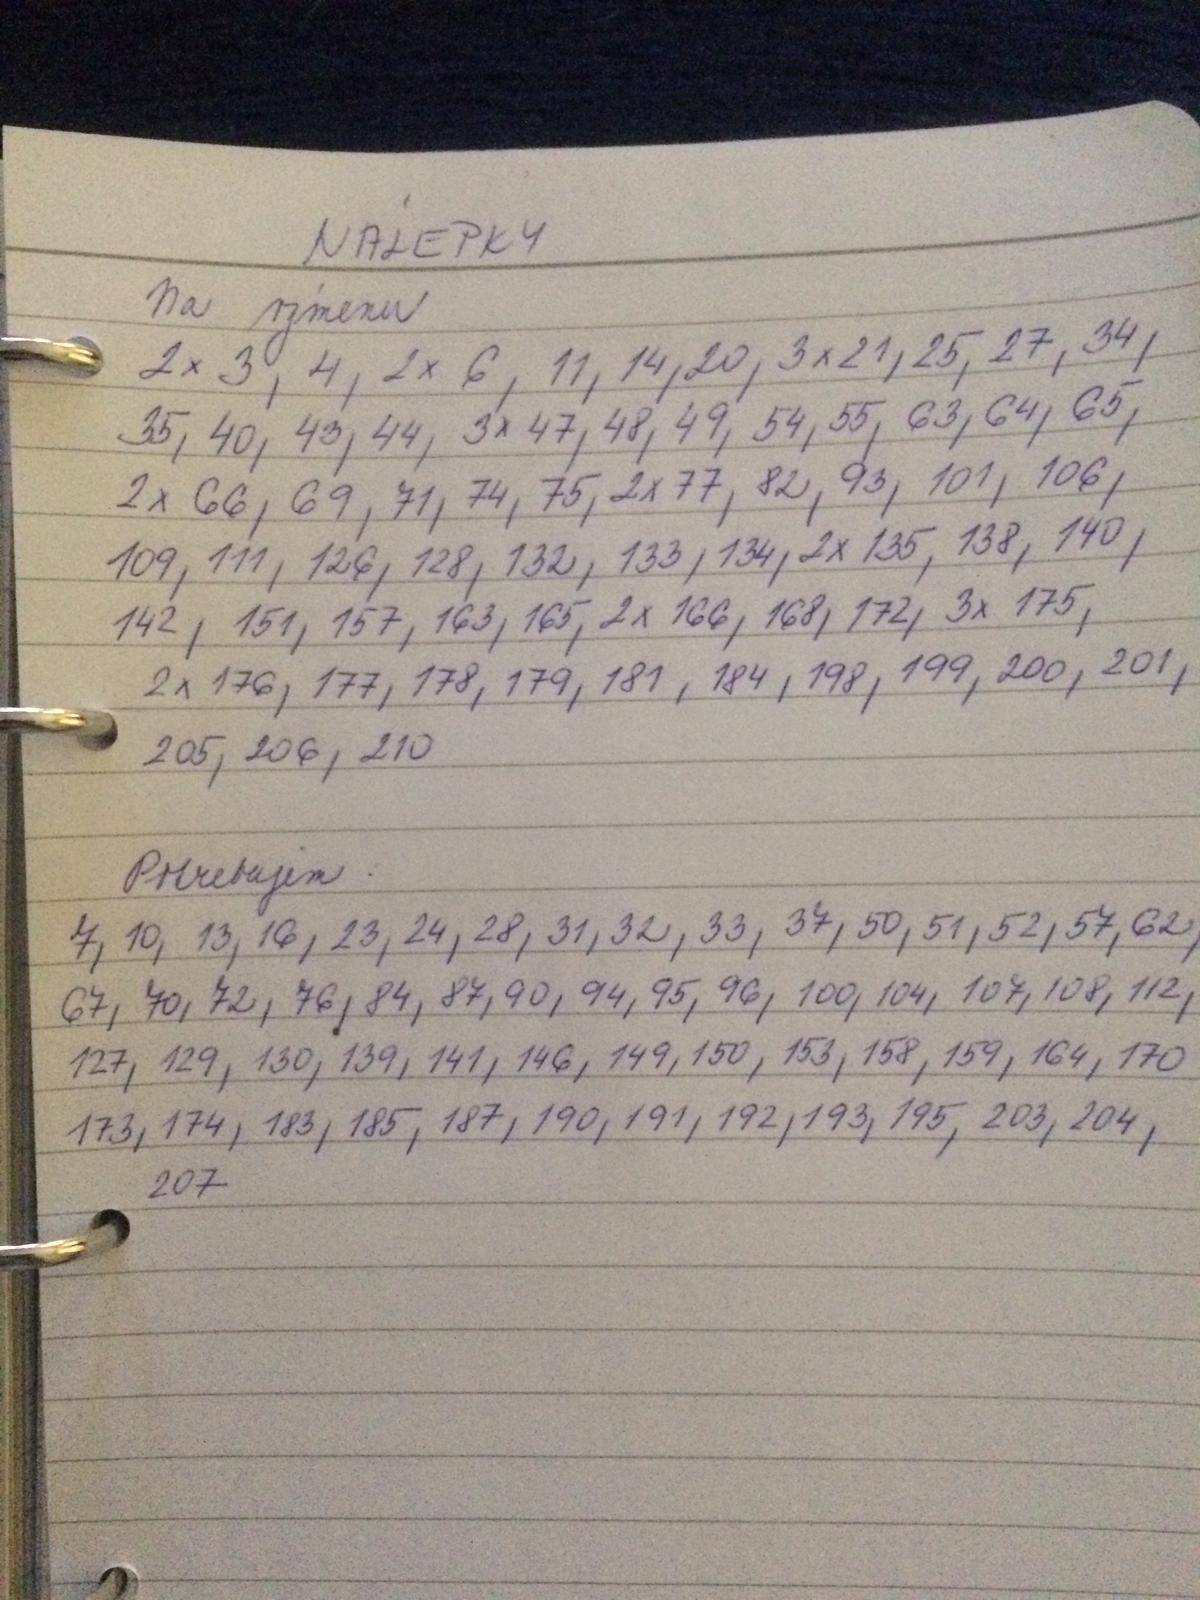 NÁLEPKY
Na výmenu
2x 3, 4, 2x 6, 11, 14, 20, 3x21, 25, 27, 34,
35, 40, 43, 44, 3x 47, 48, 49, 54, 55, 63, 64, 65,
2x 66, 69, 71, 74, 75, 2x77, 82, 93, 101, 106,
109, 111, 126, 128, 132, 133, 134, 2x 135, 138, 140,
142, 151, 157, 163, 165, 2x 166, 168, 172, 3x 175,
2x 176, 177, 178, 179, 181, 184, 198, 199, 200, 201,
205, 206, 210
Potrebujem:
7, 10, 13, 16, 23, 24, 28, 31, 32, 33, 37, 50, 51, 52, 57, 62,
67, 70, 72, 76, 84, 87, 90, 94, 95, 96, 100, 104, 107, 108, 112,
127, 129, 130, 139, 141, 146, 149, 150, 153, 158, 159, 164, 170
173, 174, 183, 185, 187, 190, 191, 192, 193, 195, 203, 204,
207